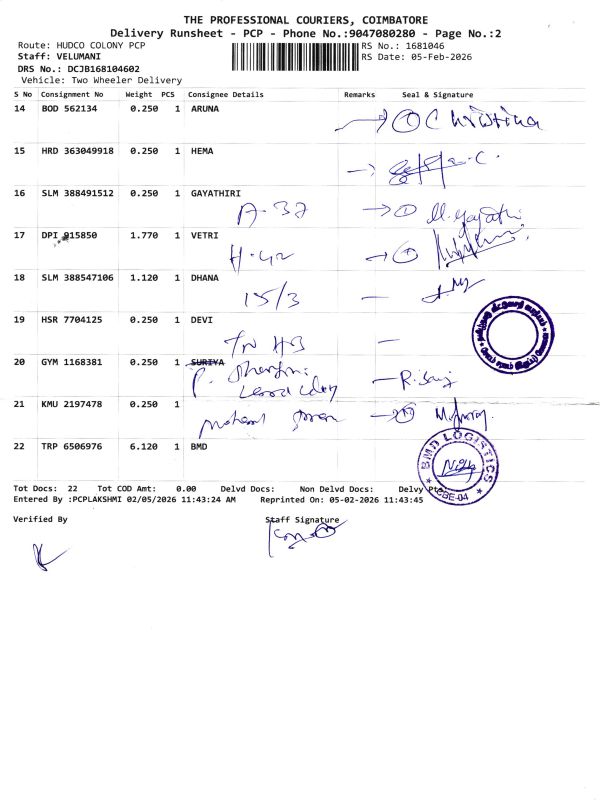 THE PROFESSIONAL COURIERS, COIMBATORE
Delivery Runsheet - PCP - Phone No.:9047080280 - Page No.:2
Route: HUDCO COLONY PCP
RS No.: 1681046
Staff: VELUMANI
RS Date: 05-Feb-2026
DRS No.: DCJB168104602
Vehicle: Two Wheeler Delivery
S No Consignment No Weight PCS Consignee Details Remarks Seal & Signature
14 BOD 562134 0.250 1 ARUNA
Christina
15 HRD 363049918 0.250 1 HEMA
16 SLM 388491512 0.250 1 GAYATHIRI
A-37 M. Gayathi
17 DPI 915850 1.770 1 VETRI
H-42
18 SLM 388547106 1.120 1 DHANA
15/3
19 HSR 7704125 0.250 1 DEVI
TN HB
20 GYM 1168381 0.250 1 SURIYA
P.
21 KMU 2197478 0.250 1
22 TRP 6506976 6.120 1 BMD
BMD LOGISTICS
CBE-04
Tot Docs: 22 Tot COD Amt: 0.00 Delvd Docs: Non Delvd Docs: Delvy
Entered By :PCPLAKSHMI 02/05/2026 11:43:24 AM Reprinted On: 05-02-2026 11:43:45
Verified By Staff Signature